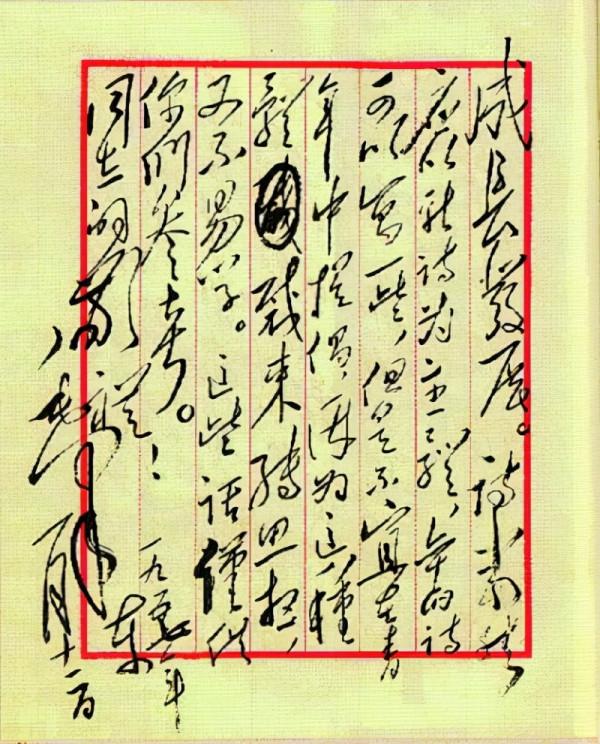 成長發展。詩當然
應以新詩為主體，舊詩
可以寫一些，但是不宜在青
年中提倡，因為這種
體裁束縛思想，
又不易學。這些話僅供
你們參考。
同志的敬禮！
毛澤東
一九五七年
一月十二日